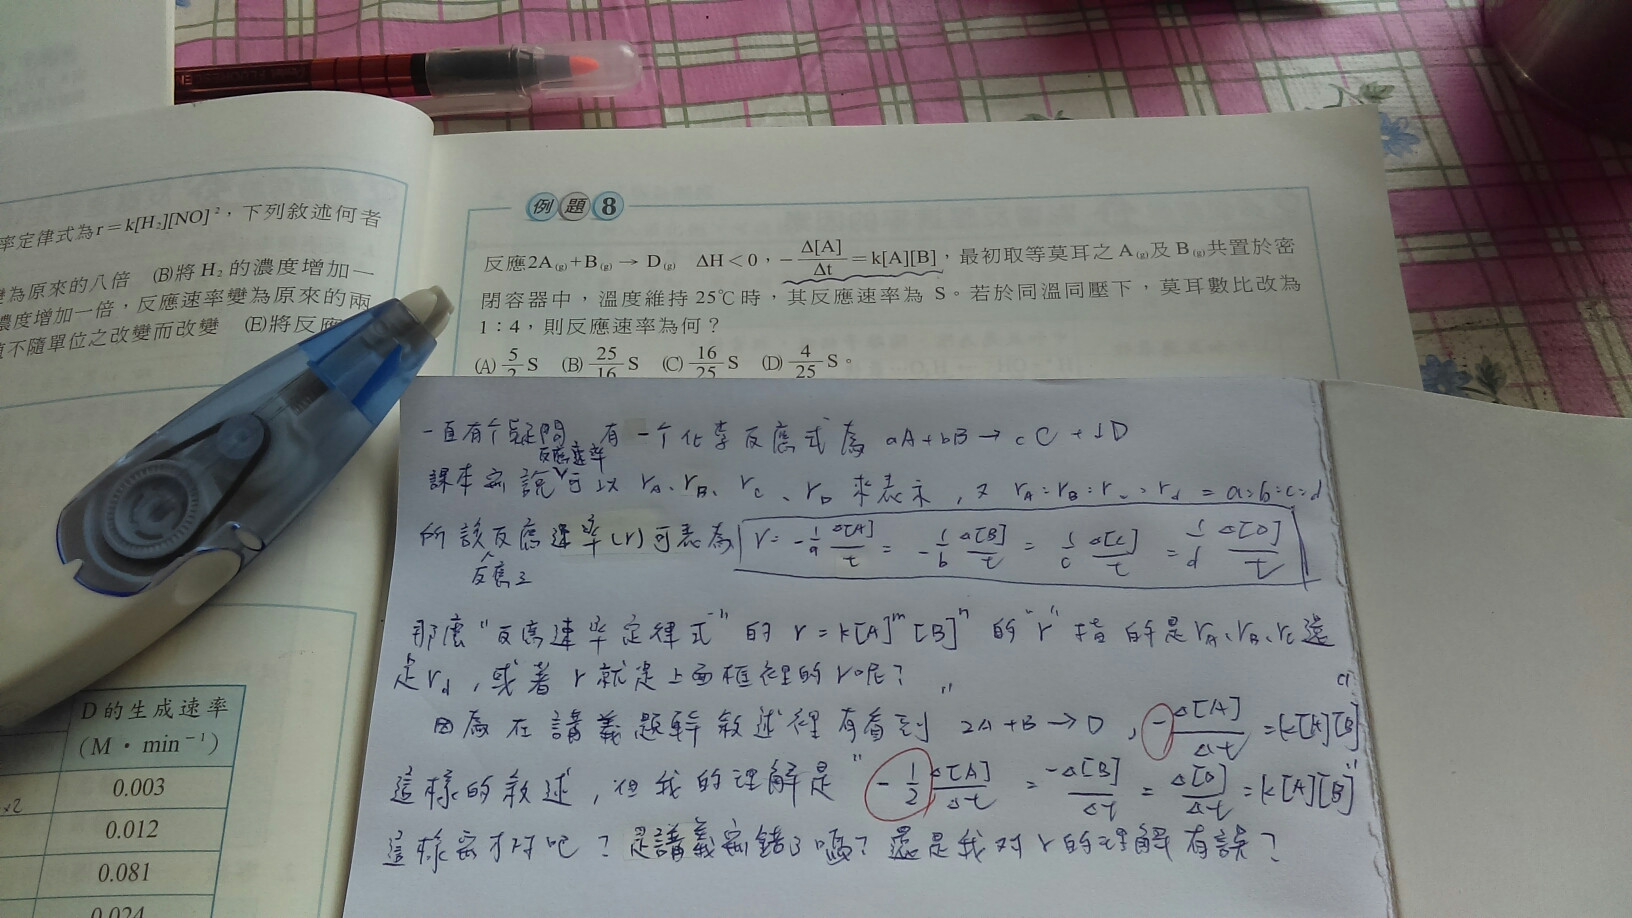 率定律式為r=k[H₂][NO]²，下列敘述何者
變為原來的八倍 (B)將H₂的濃度增加一
濃度增加一倍，反應速率變為原來的兩
值不隨單位之改變而改變 (E)將反應
例題8
反應2A(g)+B(g)→D(g) ΔH<0，-Δ[A]/Δt=k[A][B]，最初取等莫耳之A(g)及B(g)共置於密
閉容器中，溫度維持25℃時，其反應速率為S。若於同溫同壓下，莫耳數比改為
1：4，則反應速率為何？
(A) 5/2 S (B) 25/16 S (C) 16/25 S (D) 4/25 S。
一直有个疑問 有一个化學反應式為 aA+bB→cC+dD
課本寫說反應速率可以 rA、rB、rC、rD 來表示，又 rA:rB:rc:rd = a:b:c:d
所該反應速率(r)可表為 r=-1/a Δ[A]/t = -1/b Δ[B]/t = 1/c Δ[C]/t = 1/d Δ[D]/t
反應之
那麼"反應速率定律式"的 r=k[A]ᵐ[B]ⁿ 的"r"指的是rA、rB、rC還
是rd，或者r就是上面框裡的r呢？
因為在講義題幹敘述裡有看到"2A+B→D，-Δ[A]/Δt=k[A][B]"
這樣的敘述，但我的理解是"-1/2 Δ[A]/Δt = -Δ[B]/Δt = Δ[D]/Δt = k[A][B]"
這樣寫才對吧？是講義寫錯了嗎？還是我对r的理解有誤？
D的生成速率
(M·min⁻¹)
0.003
×2
0.012
0.081
0.024